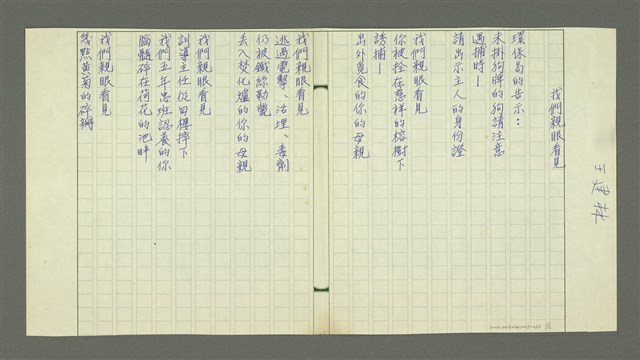 我們親眼看見
環保局的告示：
未掛狗牌的狗請注意
遇捕時—
請出示主人的身份證
我們親眼看見
你被拴在慈祥的榕樹下
誘捕—
出外覓食的你的母親
我們親眼看見
逃過電擊、活埋、毒劑
仍被鐵絲勒斃
丟入焚化爐的你的母親
我們親眼看見
訓導主任從四樓摔下
我們五年忠班認養的你
腦髓碎在荷花的池畔
我們親眼看見
幾點黃菊的碎瓣